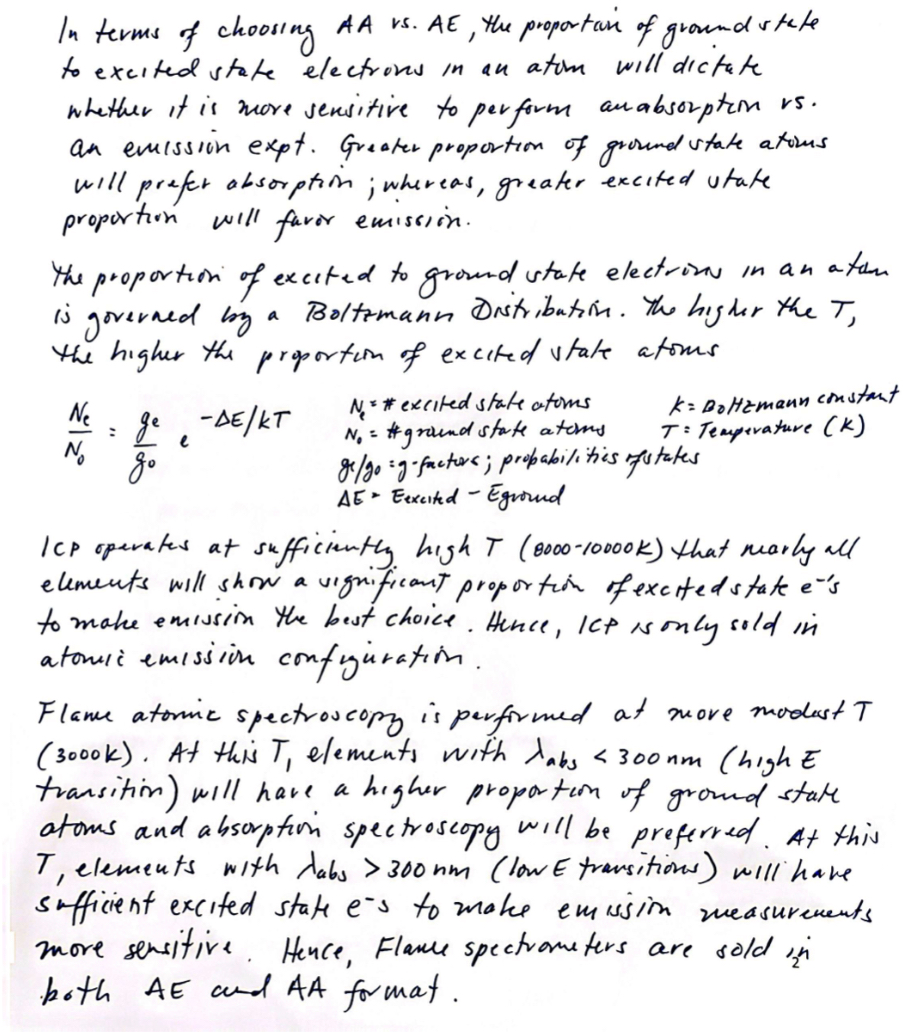 In terms of choosing AA vs. AE, the proportion of ground state
to excited state electrons in an atom will dictate
whether it is more sensitive to perform an absorption vs.
an emission expt. Greater proportion of ground state atoms
will prefer absorption; whereas, greater excited state
proportion will favor emission.
The proportion of excited to ground state electrons in an atom
is governed by a Boltzmann Distribution. The higher the T,
the higher the proportion of excited state atoms
Ne/N0 = ge/g0 e^-ΔE/kT
Ne = # excited state atoms
N0 = # ground state atoms
ge/g0 = g-factors; probabilities of states
ΔE = Eexcited - Eground
K = Boltzmann constant
T = Temperature (K)
ICP operates at sufficiently high T (8000-10000K) that nearly all
elements will show a significant proportion of excited state e-'s
to make emission the best choice. Hence, ICP is only sold in
atomic emission configuration.
Flame atomic spectroscopy is performed at more modest T
(3000K). At this T, elements with λabs < 300 nm (high E
transition) will have a higher proportion of ground state
atoms and absorption spectroscopy will be preferred. At this
T, elements with λabs > 300 nm (low E transitions) will have
sufficient excited state e-s to make emission measurements
more sensitive. Hence, Flame spectrometers are sold in
2
both AE and AA format.